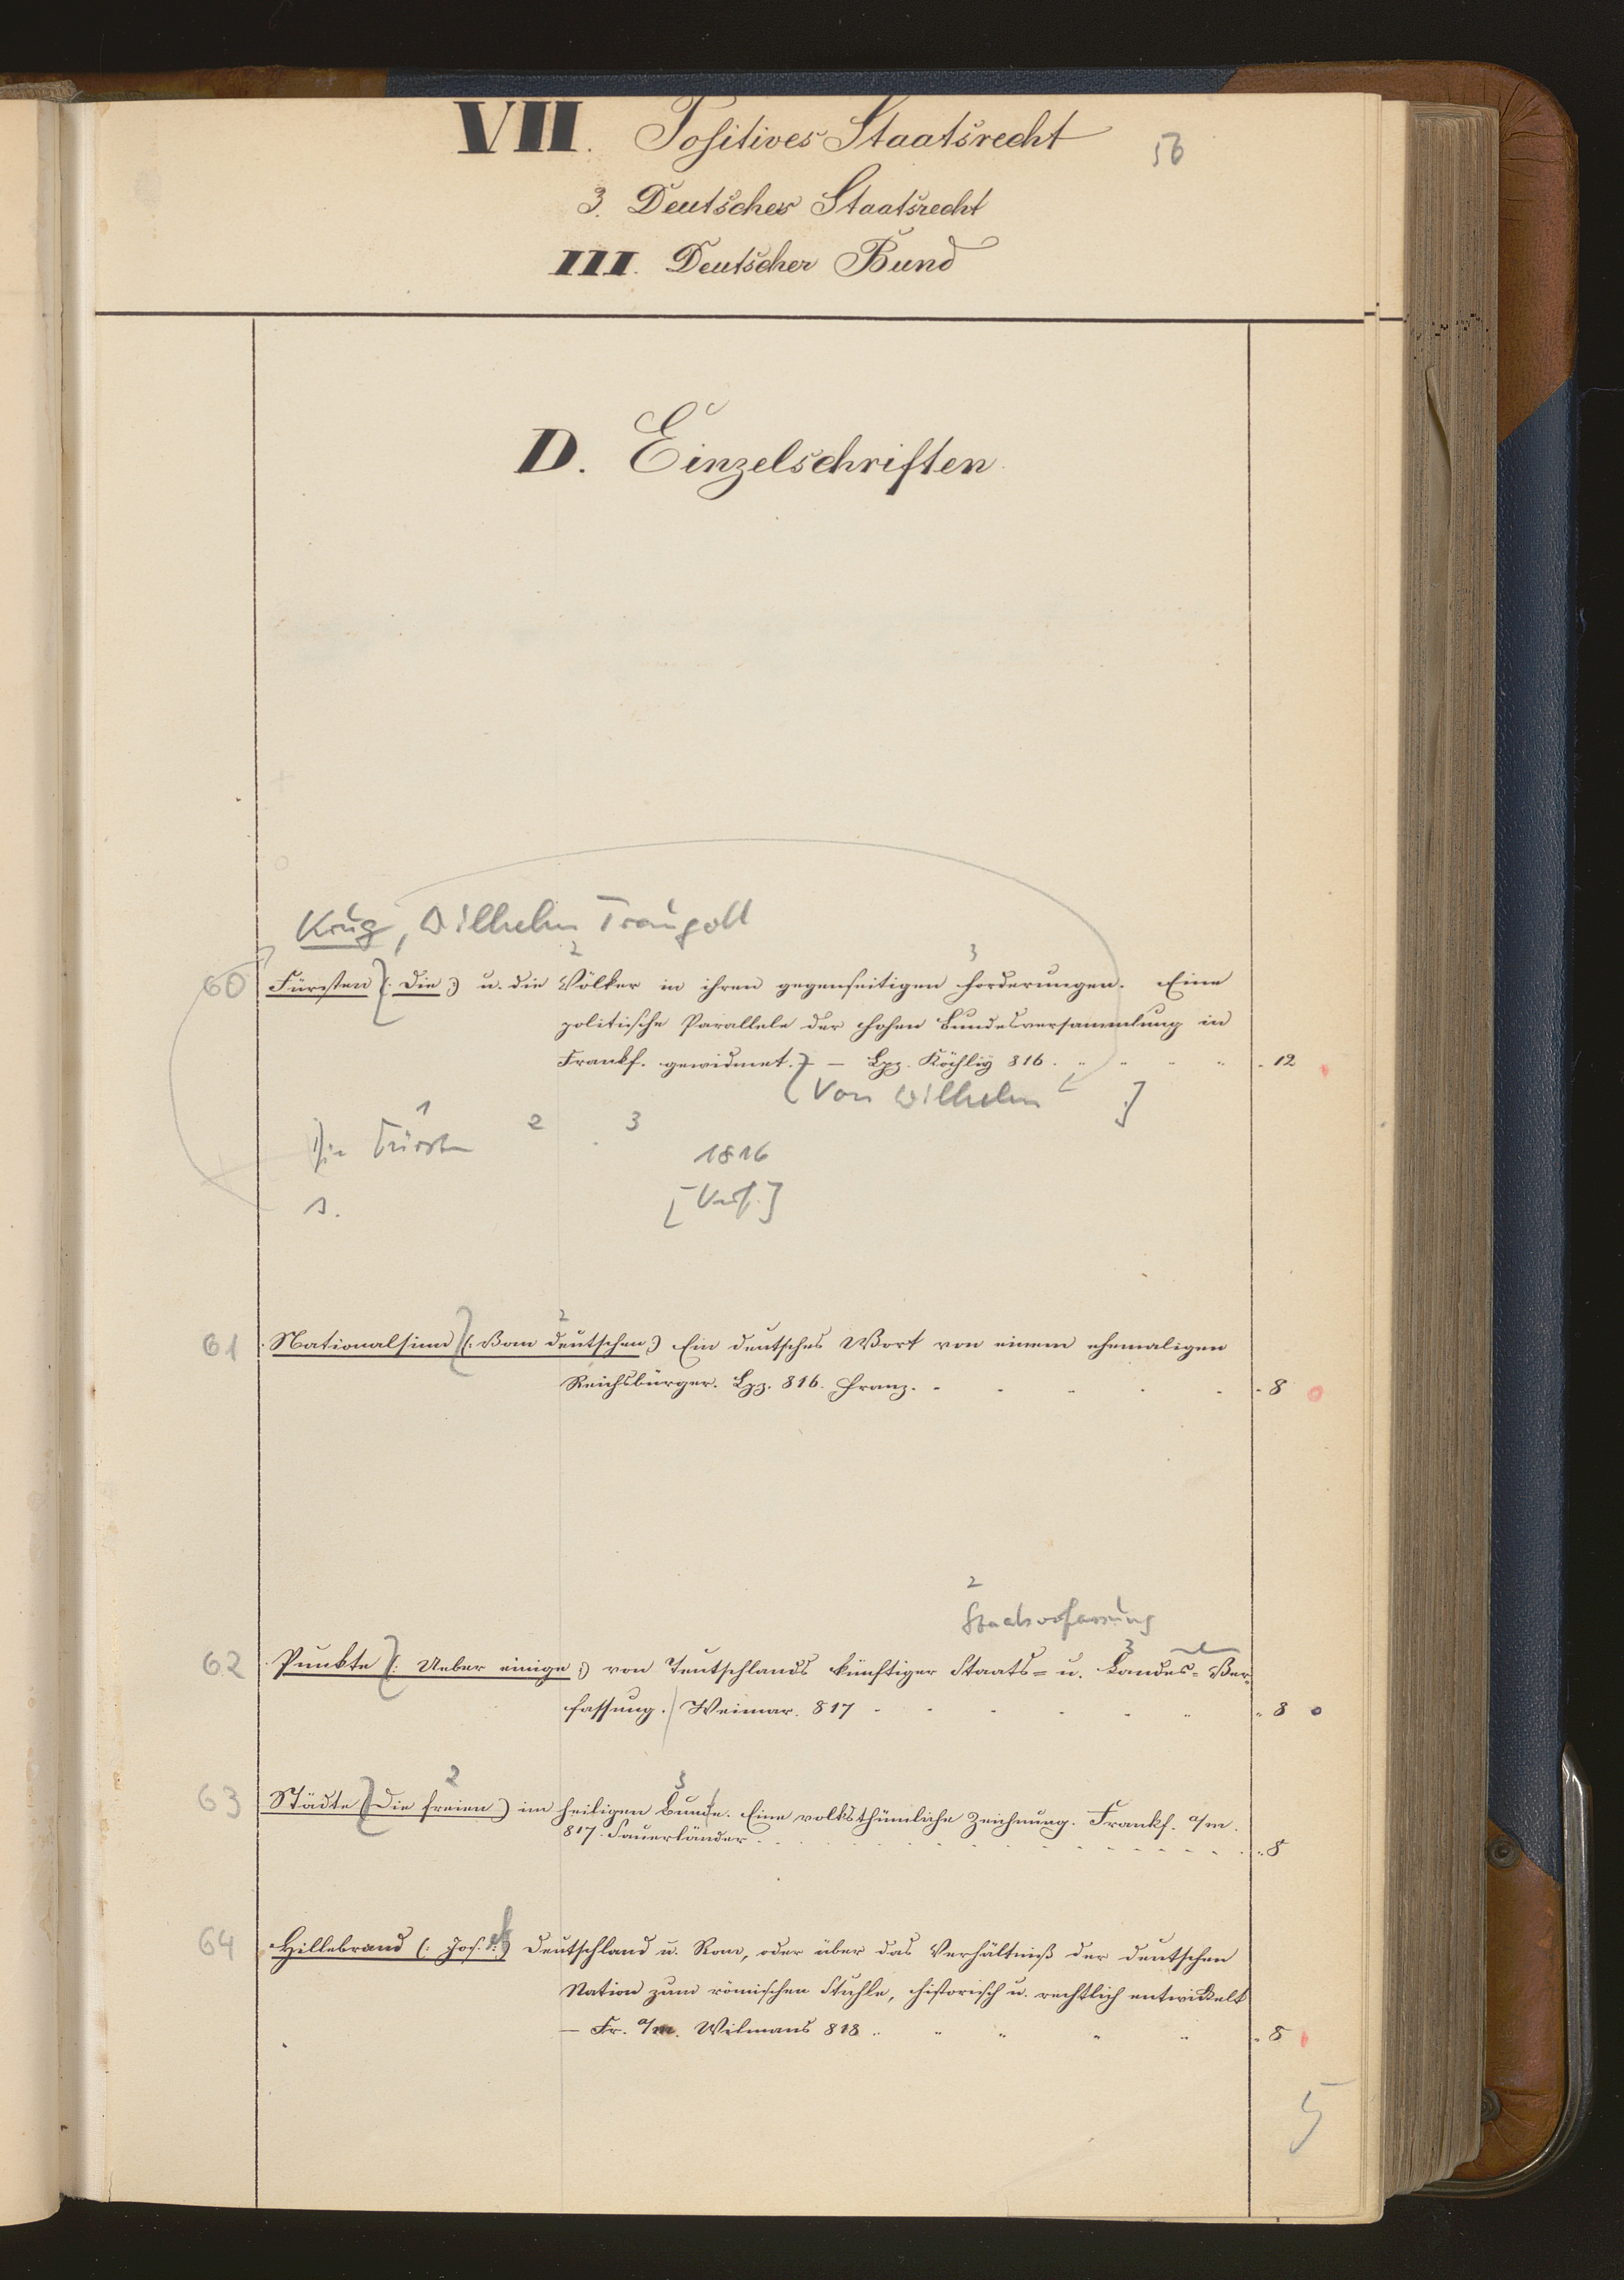 VII. Positives Staatsrecht
56
3. Deutsches Staatsrecht
III. Deutscher Bund
D. Einzelschriften
Krug, Wilhelm Traugott
2 3
60 Fürsten (: Die :) u. die Völker in ihren gegenseitigen Forderungen. Eine
politische Parallele der hohen Bundesversammlung in
Frankf. gewidmet. – Lpz. Köchly 816. 12
[Von Wilhelm ]
1 2 3
Die Fürsten
1816
s. [Verf.]
2
61 Nationalsinn (: Vom deutschen :) Ein deutsches Wort von einem ehemaligen
Reichsbürger. Lpz. 816. Franz. 8
2
Staatsverfassung
3
62 Punkte (: Ueber einige :) von Teutschlands künftiger Staats= u. Landes= Ver=
fassung. Weimar. 817 8
2 3
63 Städte (Die freien) im heiligen Bunde. Eine volksthümliche Zeichnung. Frankf. a/m.
817. Sauerländer 8
64 Hillebrand (: Jos. :) Deutschland u. Rom, oder über das Verhältniß der deutschen
Nation zum römischen Stuhle, historisch u. rechtlich entwickelt
– Fr. a/m. Wilmans 818 8
5